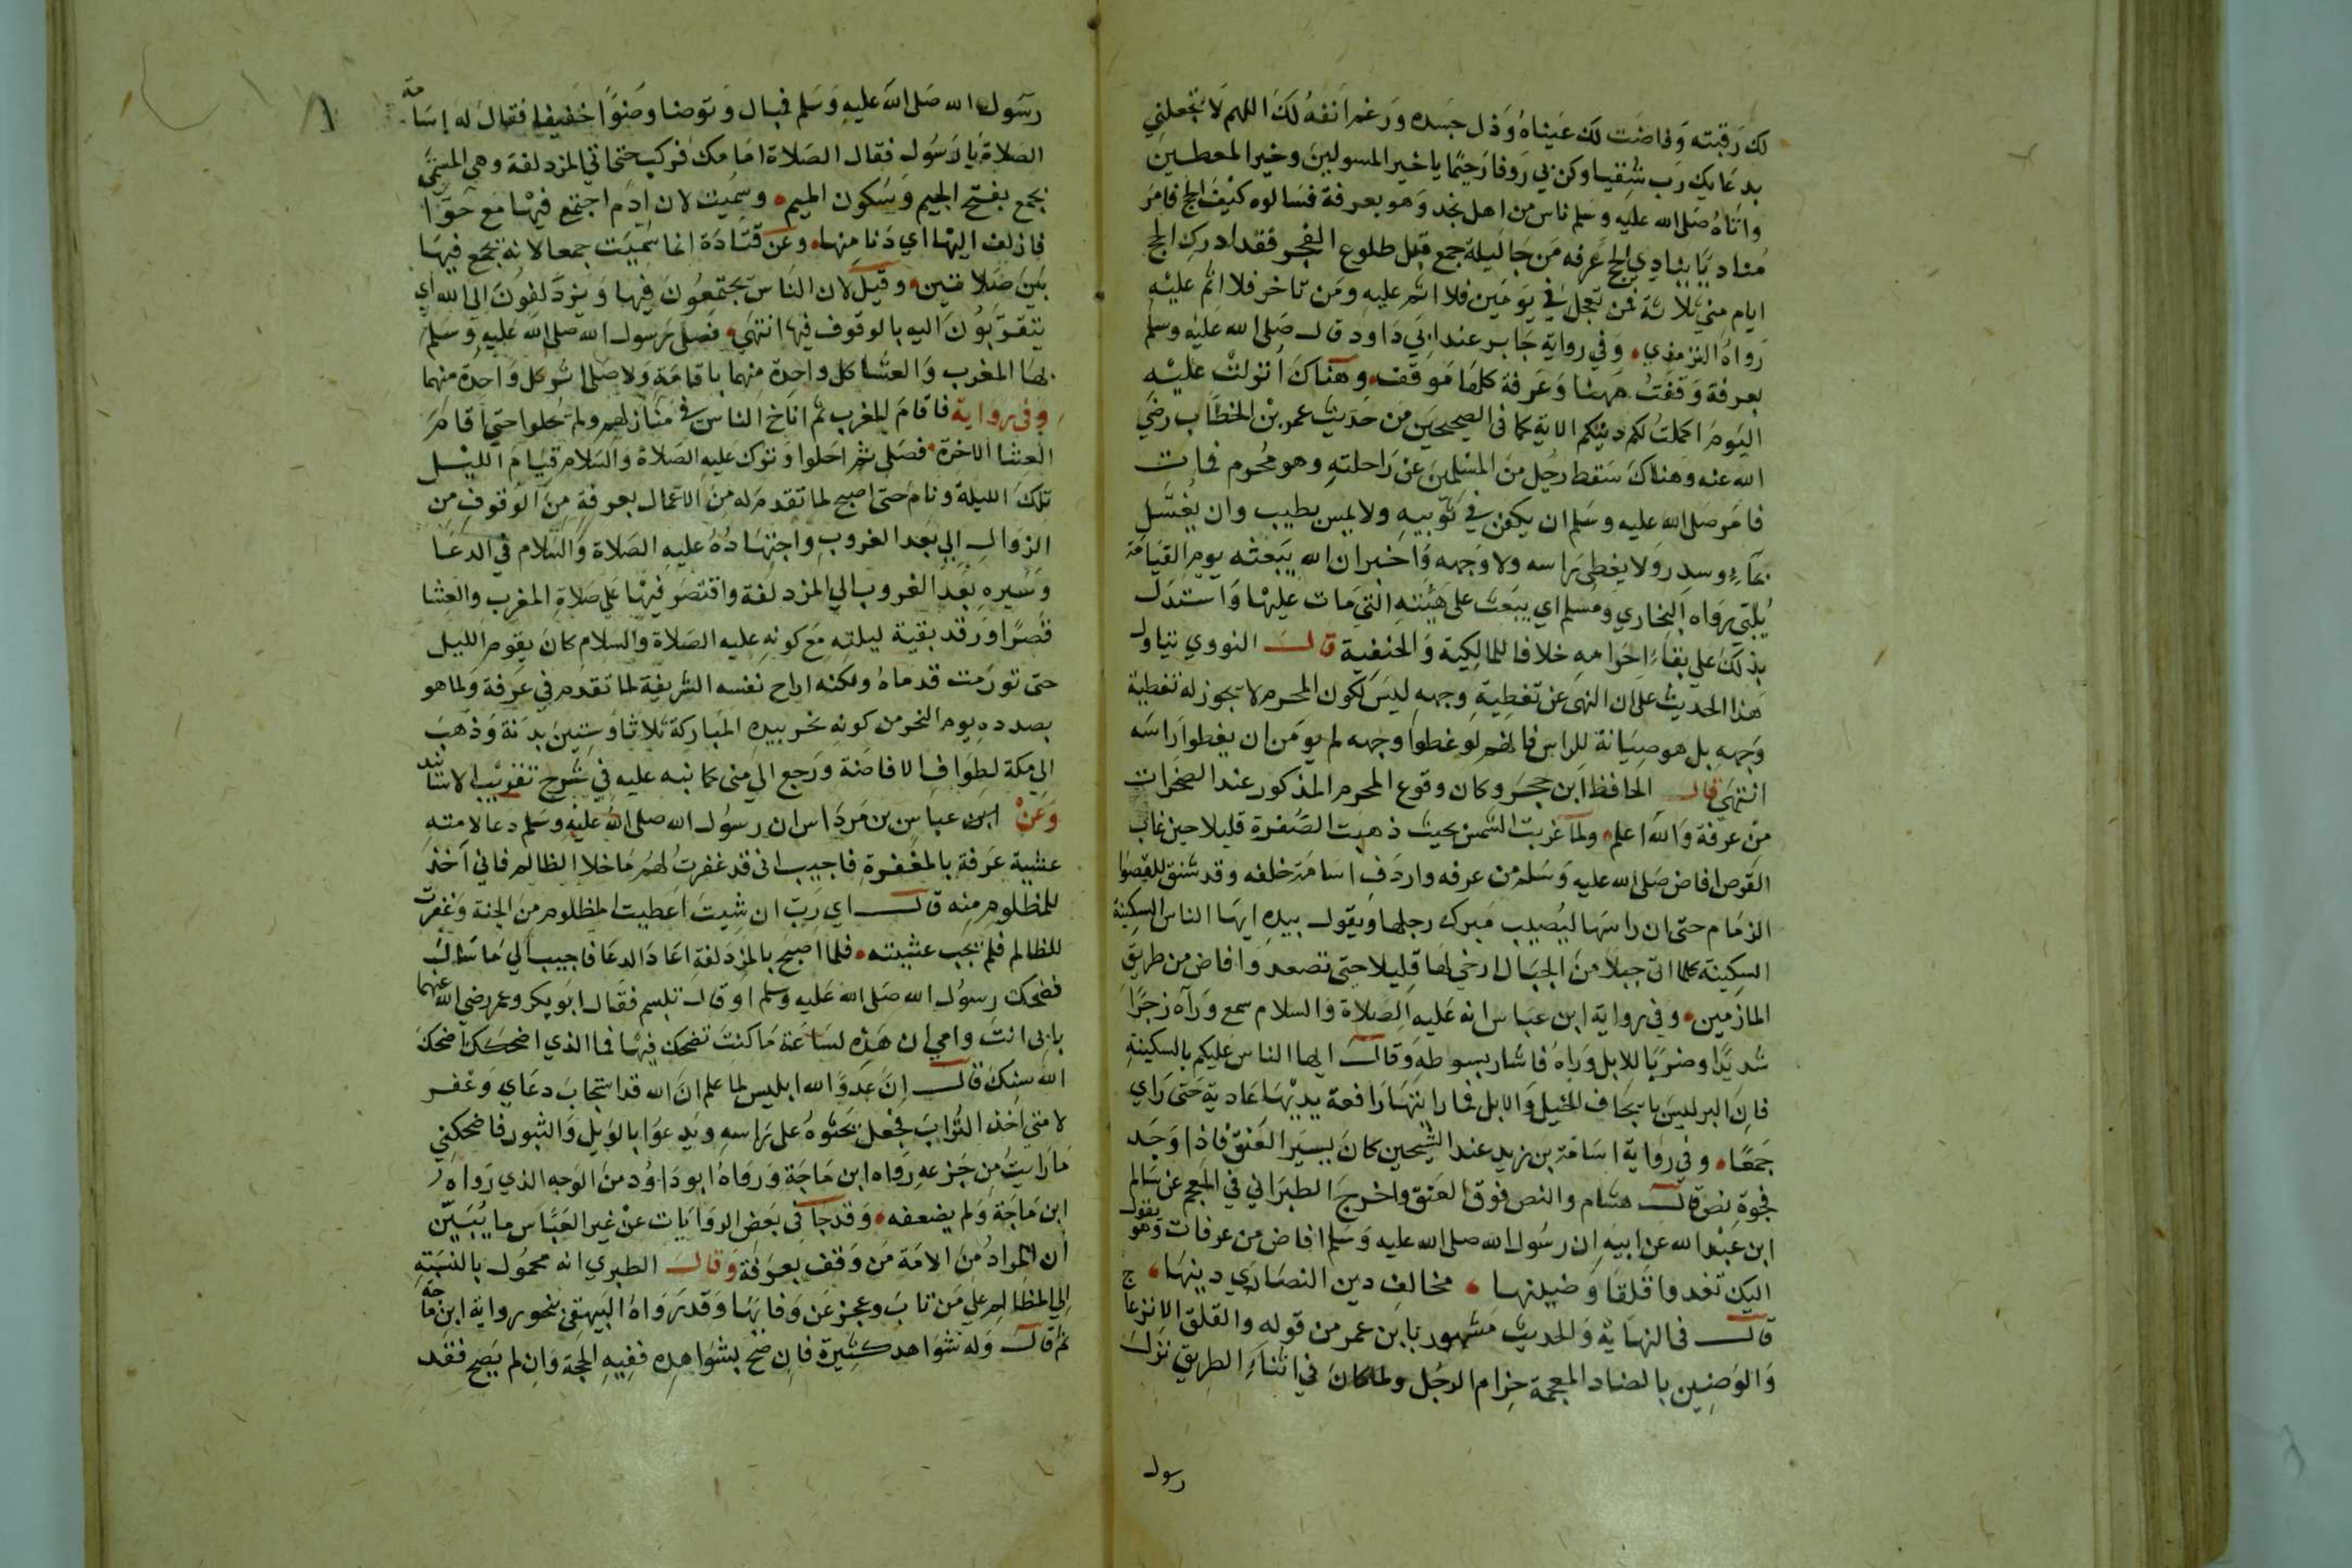 لك رقبته وفاضت لك عيناه وذل جسده ورغم انفه لك اللهم لا تجعلني
بدعايك رب شقيا وكن بي روفا رحيما يا خير المسولين وخير المعطين
واتاه صلى الله عليه وسلم ناس من اهل نجد وهو بعرفة فسالوه كيف الحج فامر
مناديا ينادي الحج عرفه من جا ليلة جمع قبل طلوع الفجر فقد ادرك الحج
ايام مني ثلاثة فمن تعجل في يومين فلا اثم عليه ومن تاخر فلا اثم عليه
رواه الترمذي وفي رواية جابر عند ابي داود قال صلى الله عليه وسلم
بعرفة وقفت ههنا وعرفة كلها موقف وهناك انزلت عليه
اليوم اكملت لكم دينكم الاية كما في الصحيحين من حديث عمر بن الخطاب رضي
الله عنه وهناك سقط رجل من المسلمين عن راحلته وهو محرم فمات
فامر صلى الله عليه وسلم ان يكفن في ثوبيه ولا يمس بطيب وان يغسل
بماء وسدر ولا يغطى راسه ولا وجهه واخبر ان الله يبعثه يوم القيامة
يلبي رواه البخاري ومسلم اي يبعث على هيئته التي مات عليها واستدل
بذلك على بقاء احرامه خلافا للمالكية والحنفية قال النووي يتاول
هذا الحديث على ان النهى عن تغطية وجهه ليس لكون المحرم لا يجوز له تغطية
وجهه بل هو صيانة للراس فانهم لو غطوا وجهه لم يومن ان يغطوا راسه
انتهى قال الحافظ ابن حجر وكان وقوع المحرم المذكور عند الصخرات
من عرفة والله اعلم ولما غربت الشمس بحيث ذهبت الصفرة قليلا حين غاب
القرص افاض صلى الله عليه وسلم من عرفه واردف اسامة خلفه وقد شنق للقصوا
الزمام حتى ان راسها ليصيب مبرك رجلها ويقول بيده ايها الناس السكينة
السكينة كلما اتى جبلا من الجبال ارخي لها قليلا حتى تصعد وافاض من طريق
المازمين وفي رواية ابن عباس انه عليه الصلاة والسلام سمع وراه زجرا
شديدا وضربا للابل وراه فاشار بسوطه وقال ايها الناس عليكم بالسكينة
فان البر ليس بايجاف الخيل والابل فما رايتها رافعة يديها عادية حتى راي
جمعا وفي رواية اسامة بن زيد عند الشيخين كان يسير العنق فاذا وجد
فجوة نص قال هشام والنص فوق العنق واخرج الطبراني في المعجم عن سالم
ابن عبد الله عن ابيه ان رسول الله صلى الله عليه وسلم افاض من عرفات وهو يقول
اليك تغدوا قلقا وضينها مخالف دين النصاري دينها
قال في النهاية والحديث مشهور بابن عمر من قوله والقلق الانزعاج
والوضين بالضاد المعجمة حزام الرحل ولما كان في اثناء الطريق نزل
رسول
رسول الله صلى الله عليه وسلم فبال وتوضا وضوا خفيفا فقال له اسامة
الصلاة يا رسول فقال الصلاة امامك فركب حتى اتي المزدلفة وهي المسمى
بجمع بفتح الجيم وسكون الميم وسميت لان ادم اجتمع فيها مع حوا
فازلف اليها اي دنا منها وعن قتادة انما سميت جمعا لانه يجمع فيها
بين صلاتين وقيل لان الناس يجتمعون فيها ويزدلفون الى الله اي
يتقربون اليه بالوقوف فيها انتهى فصلى رسول الله صلى الله عليه وسلم
بها المغرب والعشا كل واحدة منهما باقامة ولا صلى اثر كل واحدة منهما
وفي رواية فاقام المغرب ثم اناخ الناس في منازلهم ولم يحلوا حتى اقام
العشا الاخرة فصلى ثم احلوا وترك عليه الصلاة والسلام قيام الليل
تلك الليلة ونام حتى اصبح لما تقدم له من الاعمال بعرفة من الوقوف من
الزوال الي بعد الغروب واجتهاده عليه الصلاة والسلام في الدعا
وسيره بعد الغروب الي المزدلفة واقتصر فيها على صلاة المغرب والعشا
قصرا ورقد بقية ليلته مع كونه عليه الصلاة والسلام كان يقوم الليل
حتى تورمت قدماه ولكنه اراح نفسه الشريفة لما تقدم في عرفة ولما هو
بصدده يوم النحر من كونه نحر بيده المباركة ثلاثا وستين بدنة وذهب
الي مكة لطواف الافاضة ورجع الي منى كما نبه عليه في شرح تقريب الاسانيد
وعن ابن عباس بن مرداس ان رسول الله صلى الله عليه وسلم دعا لامته
عشية عرفة بالمغفرة فاجيب اني قد غفرت لهم ما خلا الظالم فاني آخذ
للمظلوم منه قال اي رب ان شيت اعطيت المظلوم من الجنة وغفرت
للظالم فلم يجب عشيته فلما اصبح بالمزدلفة اعاد الدعا فاجيب الي ما سال
فضحك رسول الله صلى الله عليه وسلم او قال تبسم فقال ابو بكر وعمر رضي الله عنهما
بابي انت وامي ان هذه لساعة ما كنت تضحك فيها فما الذي اضحكك اضحك
الله سنك قال ان عدو الله ابليس لما علم ان الله قد استجاب دعاي وغفر
لامتي اخذ التراب فجعل يحثوه على راسه ويدعوا بالويل والثبور فاضحكني
ما رايت من جزعه رواه ابن ماجة ورواه ابو داود من الوجه الذي رواه
ابن ماجة ولم يضعفه وقد جا في بعض الروايات عن غير العباس ما يبين
ان المراد من الامة من وقف بعرفة وقال الطبري انه محمول بالنسبة
الي المظالم علي من تاب وعجز عن وفايها وقد رواه البيهقى بنحو رواية ابن ماجه
ثم قال وله شواهد كثيرة فان صح بشواهده ففيه الحجة وان لم يصح فقد